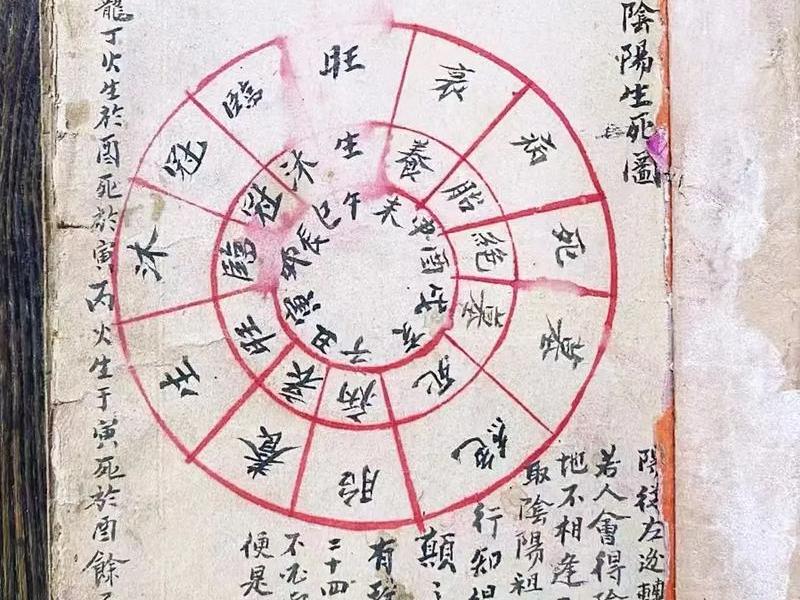 陰陽生死圖
旺
衰
病
死
墓
絕
胎
養
生
沐
冠
臨
生
養
胎
絕
墓
死
病
衰
旺
臨
冠
沐
午
未
申
酉
戌
亥
子
丑
寅
卯
辰
巳
陰從左边轉
若人會得陰
地不相逢
取陰陽祖
行知
顛
有
二十四
不
便是
龍丁火生於酉死於寅丙火生于寅死於酉餘